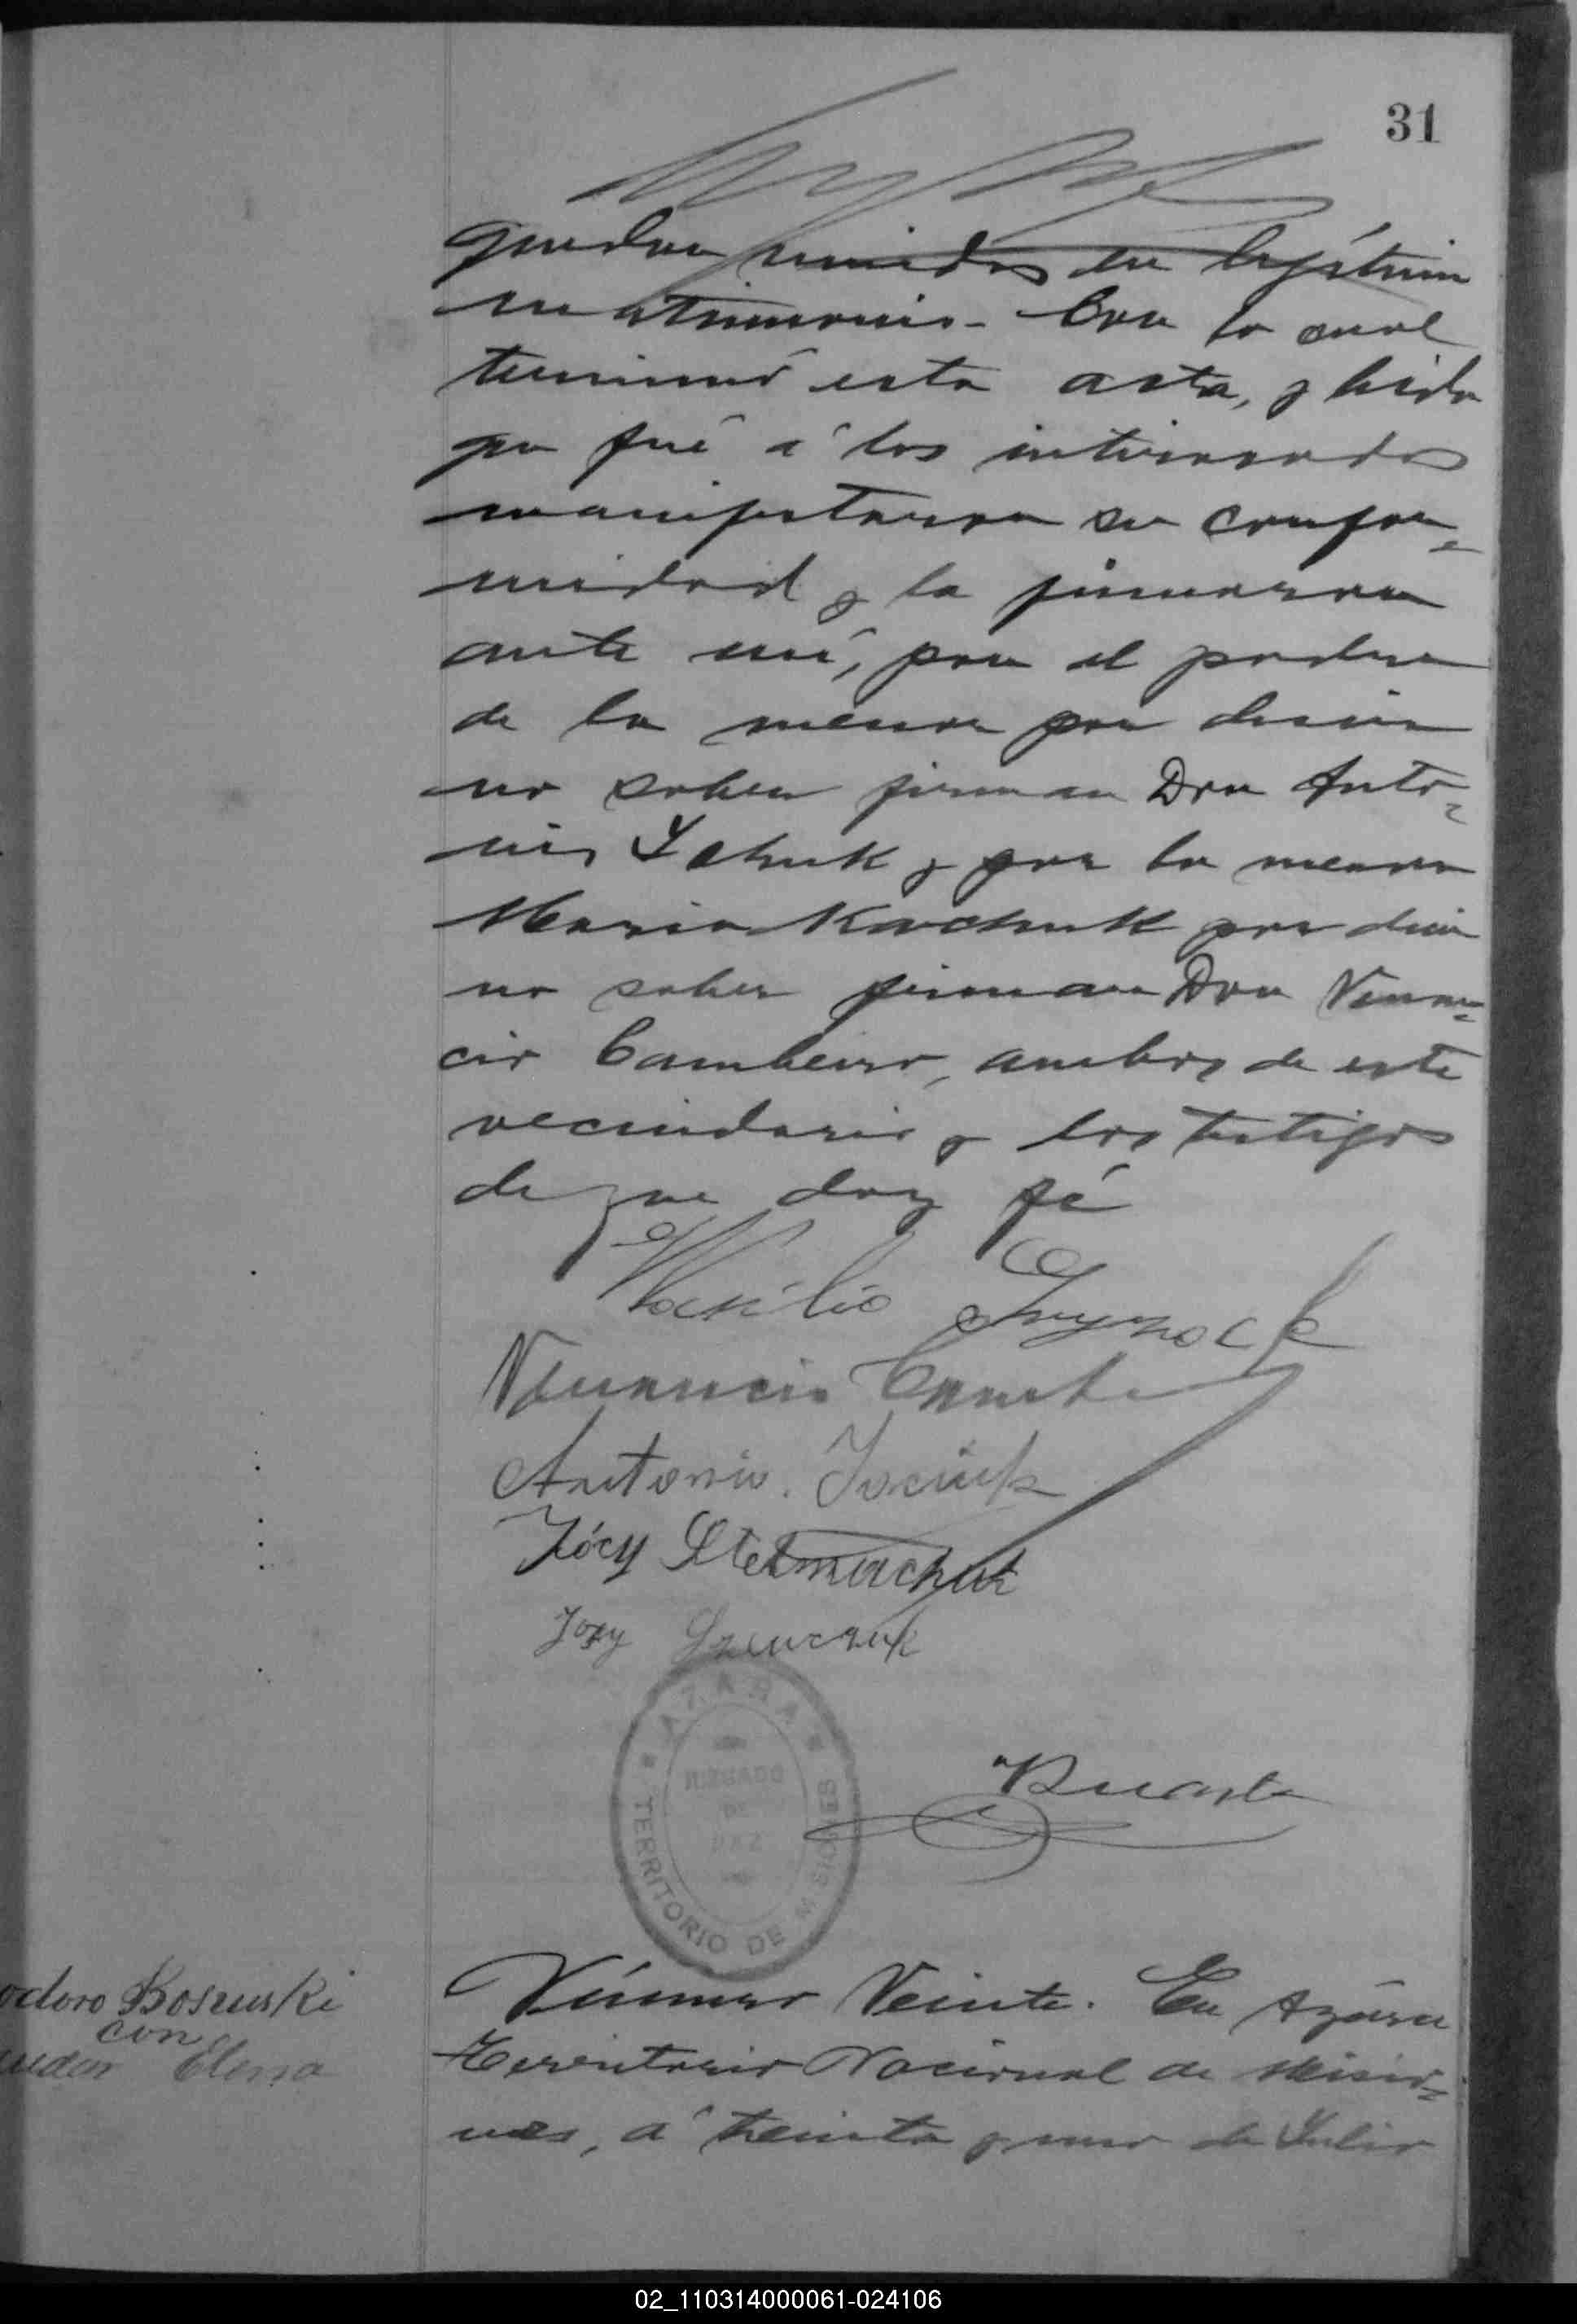 31
quedan unidos en legítimo
matrimonio - Con lo cual
terminó esta acta, y leida
que fué á los interesados
manifestaron su confor=
midad y la firmaron
ante mí, por el padre
de la menor por decir
no saber firmar Don Anto=
nio Ychuk y por la menor
Maria Kachuk por decir
no saber firmar Don Venan=
cio Cambeiro, ambos de este
vecindario y los testigos
de que doy fé
Wasilio
Venancio Cambe
Antonio. Jaciuk
Józy Stelmachuk
Jozy Szewczuk
AZARA
JUZGADO
DE
PAZ
TERRITORIO DE MISIONES
Duarte
odoro Boszuski
con
Elena
Número Veinte. En Azára
Territorio Nacional de Misio=
nes, á treinta y uno de Julio
02_110314000061-024106